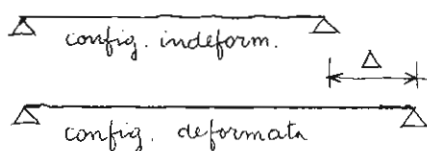 config. indeform.
Δ
config. deformata